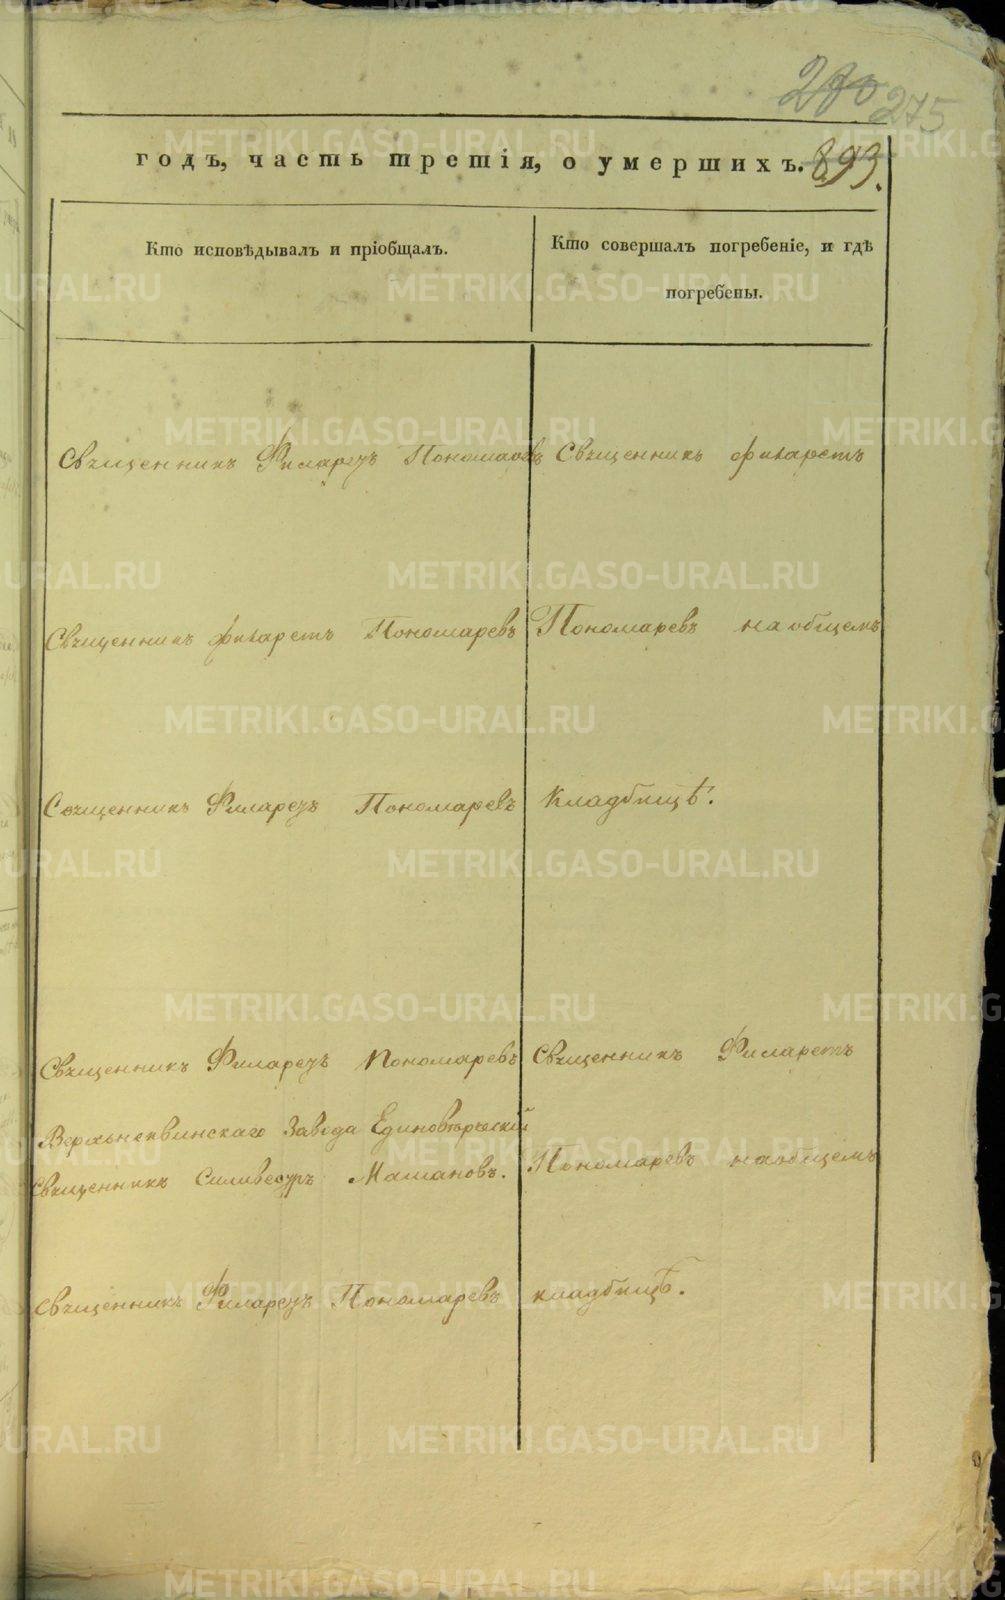 280 275
годъ, часть третія, о умершихъ. 893.
Кто исповѣдывалъ и пріобщалъ.
Кто совершалъ погребеніе, и гдѣ
погребены.
Священникъ Филаретъ Пономаревъ
Священникъ Филаретъ Пономаревъ
Священникъ Филаретъ Пономаревъ
Священникъ Филаретъ Пономаревъ
Верхнейвинскаго Завода Единовѣрческій
Священникъ Силивестръ
Священникъ Филаретъ Пономаревъ
Священникъ Филаретъ
Пономаревъ на общемъ
кладбищѣ.
Священникъ Филаретъ
Пономаревъ на общемъ
кладбищѣ.
METRIKI.GASO-URAL.RU